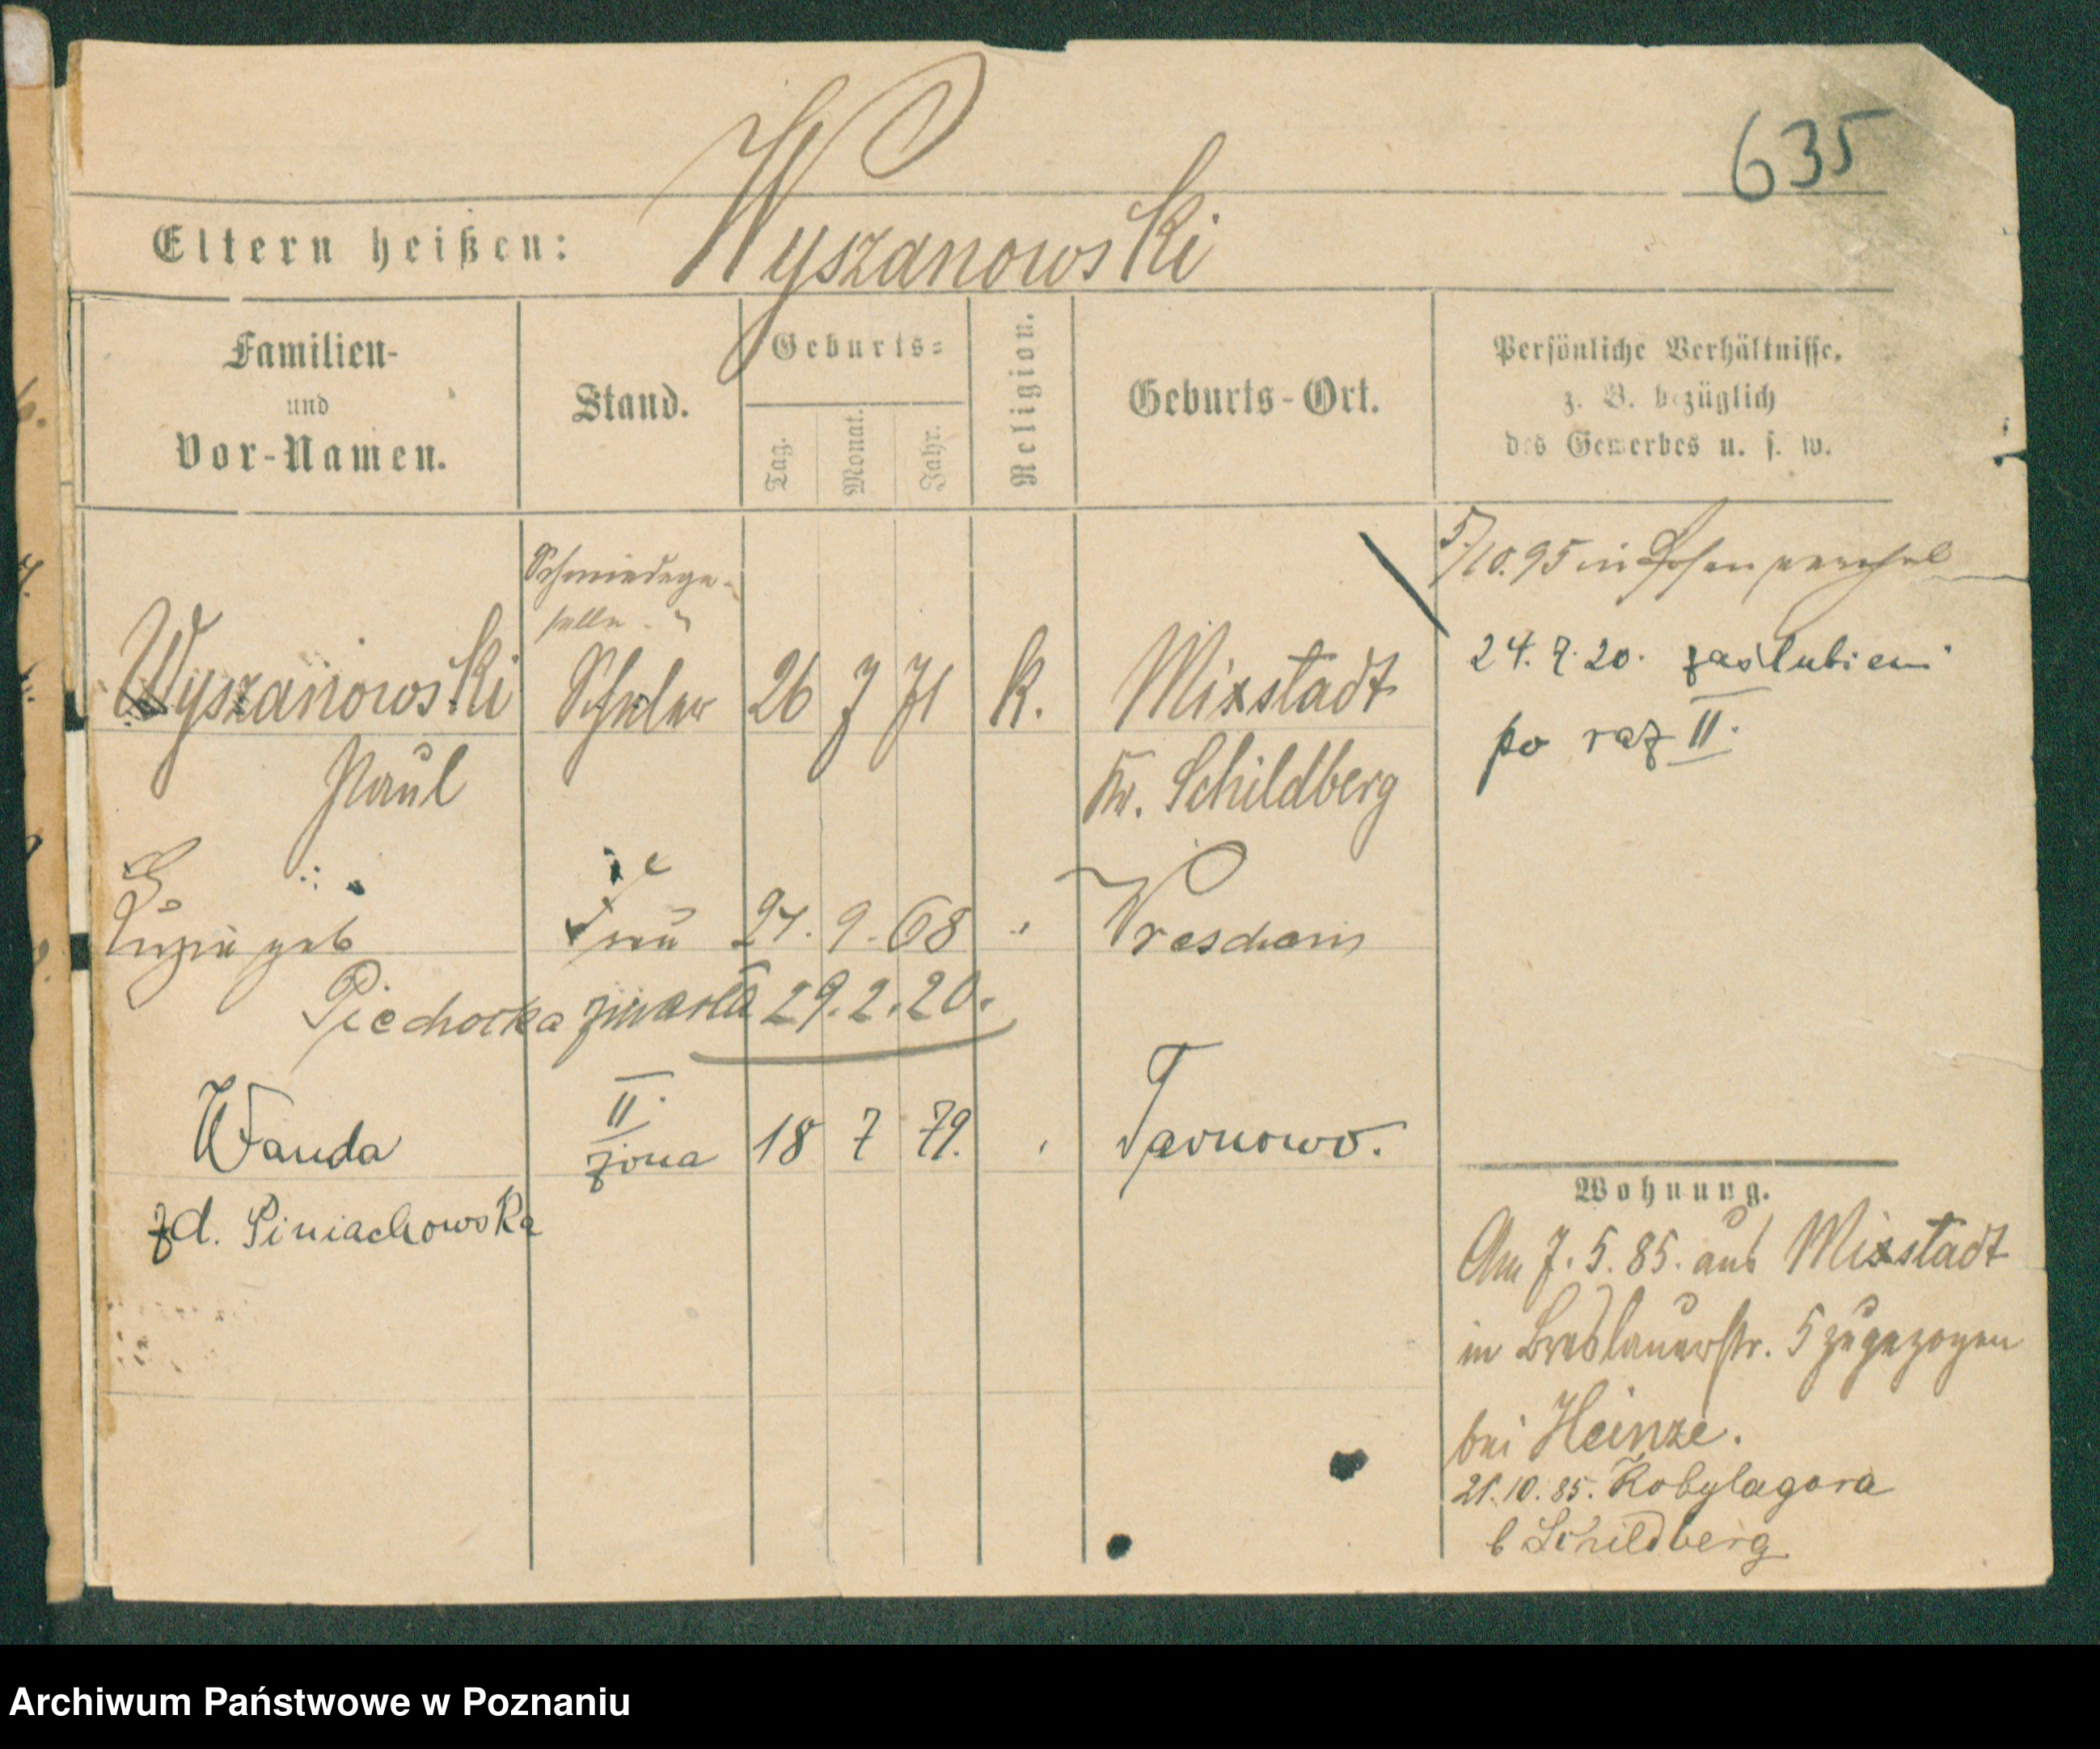 635
Eltern heißen: Wyszanowski
Familien-
und
Vor-Namen.
Stand.
Geburts-
Tag.
Monat.
Jahr.
Religion.
Geburts-Ort.
Persönliche Verhältnisse,
z. B. bezüglich
des Gewerbes u. s. w.
Schmiedege-
selle
5/10.95 in Posen
Wyszanowski Schüler 26 7 71 K. Mixstadt
24. 7. 20. zaślubieni
Paul Kr. Schildberg
po raz II.
geb Frau 9. 68 Wreschen
Piechocka zmarła 29.2.20.
Wanda II. żona 18 7 79. Tarnowo.
zd. Siniachowska
Wohnung.
Am 7. 5. 85. aus Mixstadt
in Breslauerstr. 5 zugezogen
bei Heinze.
21. 10. 85. Kobylagora
b Schildberg
Archiwum Państwowe w Poznaniu